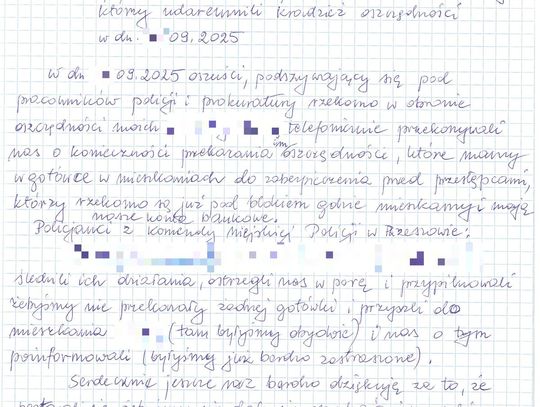 którzy udaremnili kradzież oszczędności
w dn. 09.2025
w dn 09.2025 oszuści, podszywający się pod
pracowników policji i prokuratury rzekomo w obronie
oszczędności moich telefonicznie przekonywali
nas o konieczności przekazania im oszczędności, które mamy
w gotówce w mieszkaniach do zabezpieczenia przed przestępcami,
którzy rzekomo są już pod blokiem gdzie mieszkamy i mają
nasze konta bankowe.
Policjanci z komendy Miejskiej Policji w Rzeszowie:
śledzili ich działania, ostrzegli nas w porę i przypilnowali
żebyśmy nie przekazały żadnej gotówki i przyszli do
mieszkania (tam byłyśmy obydwie) i nas o tym
poinformowali (byłyśmy już bardzo zastraszone).
Serdecznie jeszcze raz bardzo dziękuję za to, że